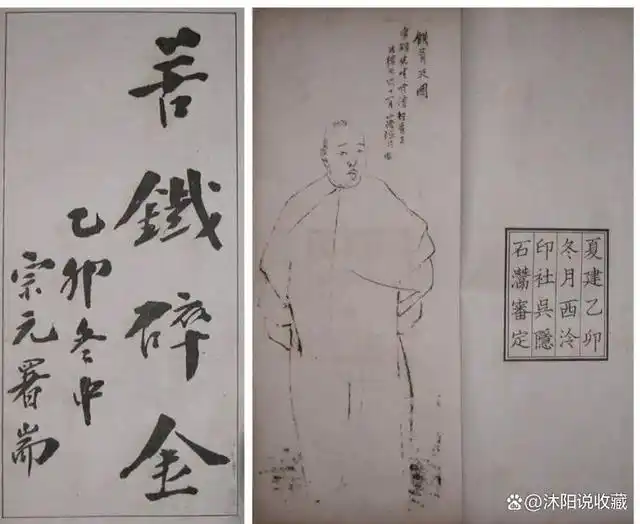 苦鐵碎金
乙卯冬中
宗元署耑
夏建乙卯
冬月西泠
印社吳隱
石潛審定
@沐阳说收藏